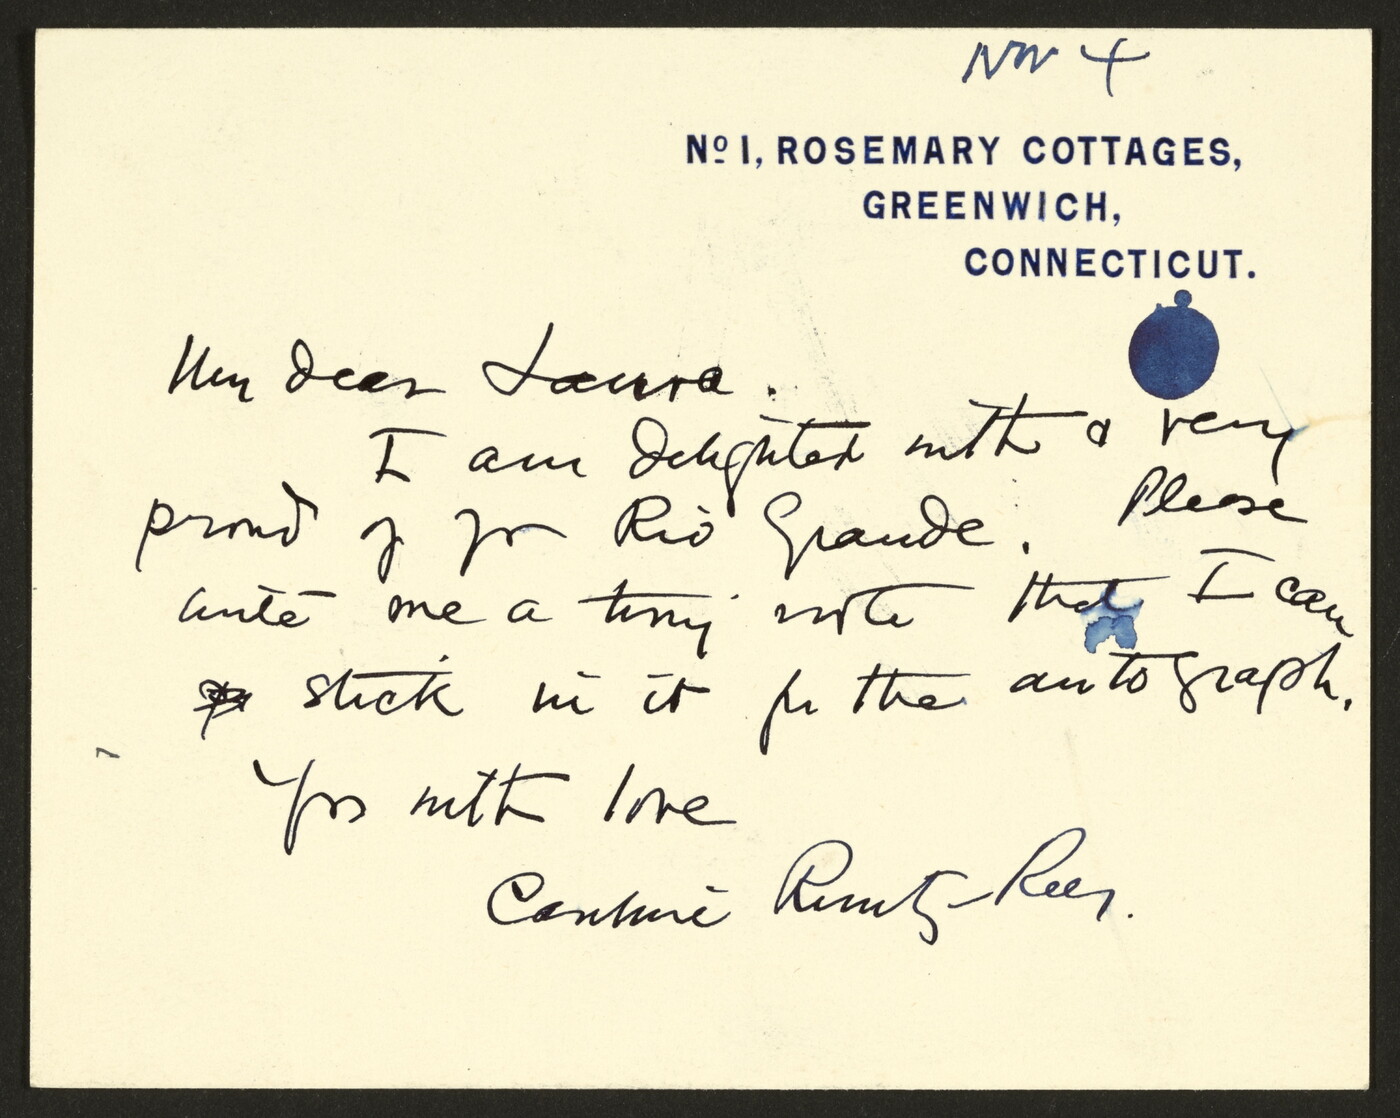 Nov 4
Nº 1, ROSEMARY COTTAGES,
GREENWICH,
CONNECTICUT.
My dear Laura.
I am delighted with & very
proud of yr Rio Grande. Please
write me a tiny note that I can
stick in it for the autograph.
Yrs with love
Caroline Ruutz-Rees.